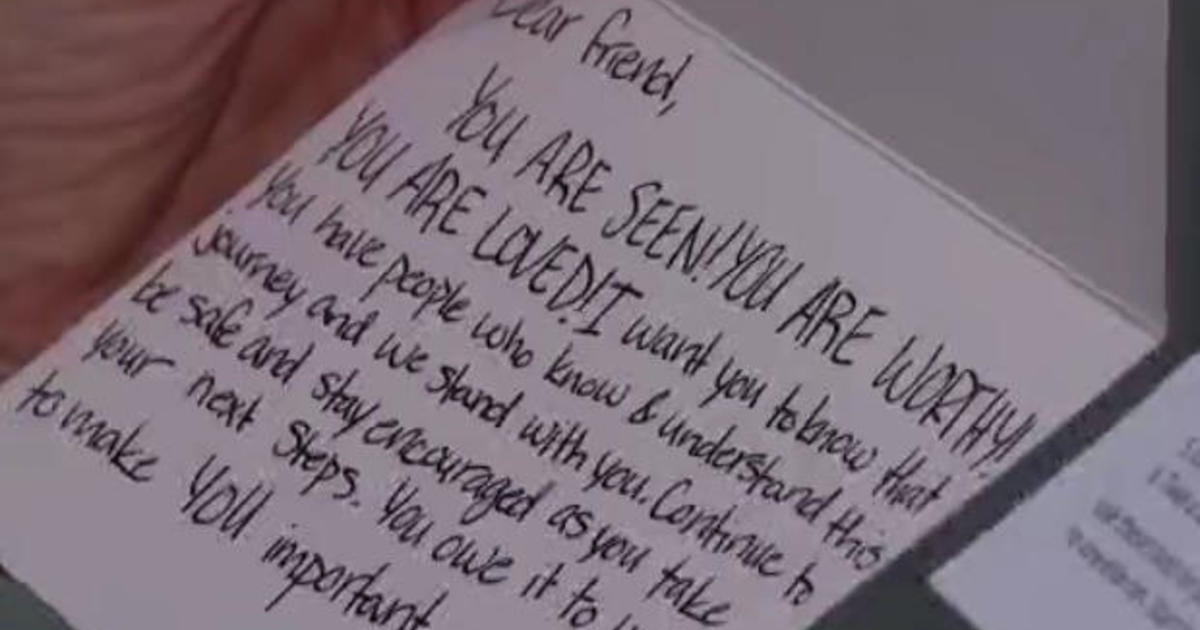 Dear friend,
YOU ARE SEEN! YOU ARE WORTHY!
YOU ARE LOVED! I want you to know that
you have people who know & understand this
journey and we stand with you. Continue to
be safe and stay encouraged as you take
your next steps. You owe it to
to make YOU important